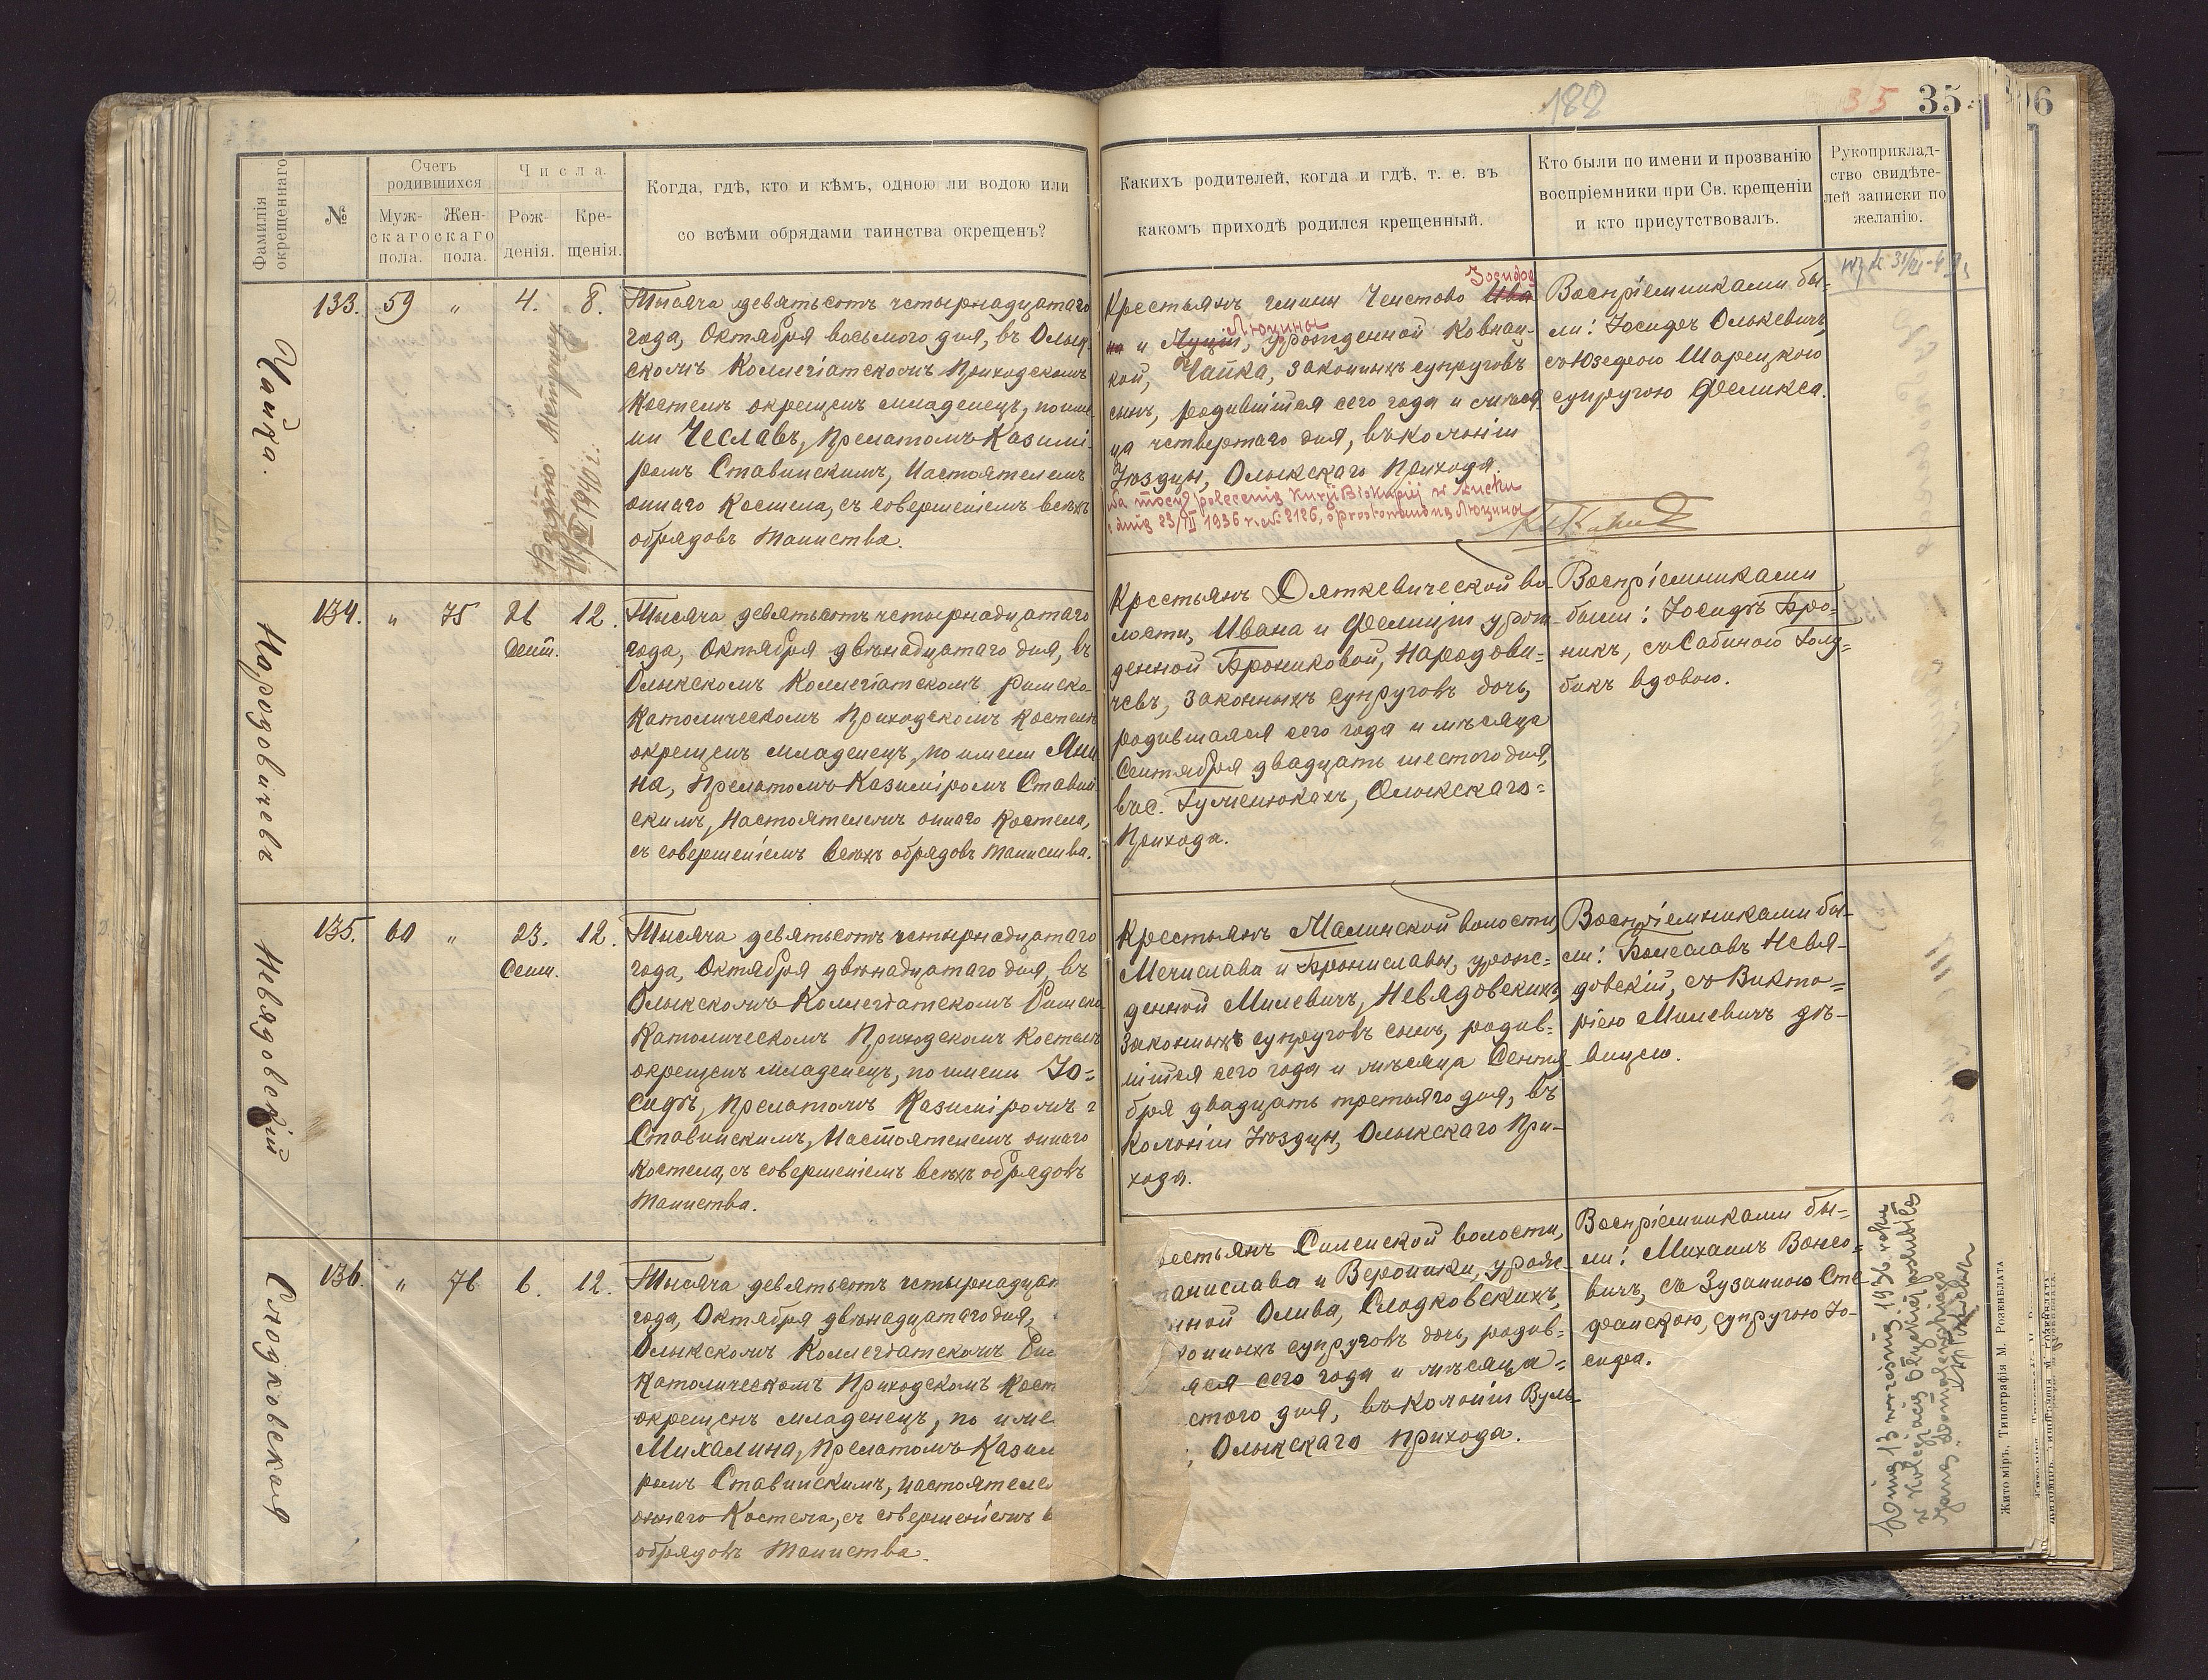 182
35
35
96
Фамилія окрещеннаго
№
Счетъ родившихся
Мужскаго пола.
Женскаго пола.
Числа
Рожденія.
Крещенія.
Когда, гдѣ, кто и кѣмъ, одною ли водою или
со всѣми обрядами таинства окрещенъ?
Какихъ родителей, когда и гдѣ, т. е. въ
какомъ приходѣ родился крещенный.
Кто были по имени и прозванію
воспріемники при Св. крещеніи
и кто присутствовалъ.
Рукоприклад-
ство свидѣте-
лей записки по
желанію.
133.
59
"
4.
8.
Тысяча девятьсотъ четырнадцатаго
года, Октября восьмого дня, въ Олык-
скомъ Коллегіатскомъ Приходскомъ
Костелѣ окрещенъ младенецъ, по име-
ни Чеславъ, Прелатомъ Казимі-
ромъ Ставинскимъ, Настоятелемъ
оннаго Костела, съ совершеніемъ всѣхъ
обрядовъ Таинства.
Выдано Метрику
1940 г.
Іосифа
Крестьянъ гмины Ченстово Ива-
Люцины
на и Луціи, урожденной Ковнац-
кой, Чайка, законныхъ супруговъ
сынъ, родившійся сего года и мѣся-
ца четвертаго дня, въ колоніи
Гюздцы, Олыкскаго Прихода.
Na mocy polecenia Kurji Biskupiej w Łucku
z dnia 23/III 1936 r. № 2126, sprostowano na Люцина
Воспріемниками бы-
ли: Іосифъ Олькевичъ,
съ Юзефою Шарецкою
супругою Феликса.
134.
"
75
26
Сент.
12.
Народовичевъ
Тысяча девятьсотъ четырнадцатаго
года, Октября двѣнадцатаго дня, въ
Олыкскомъ Коллегіатскомъ римско-
Католическомъ Приходскомъ Костелѣ
окрещенъ младенецъ, по имени Яни-
на, Прелатомъ Казиміромъ Ставин-
скимъ, Настоятелемъ оннаго Костела,
съ совершеніемъ всѣхъ обрядовъ Таинства.
Крестьянъ Дяткевической во-
лости, Ивана и Фелиціи урож-
денной Брониковой, Народови-
чевъ, законныхъ супруговъ дочь,
родившаяся сего года и мѣсяца
Сентября двадцать шестого дня,
въ с. Гуменюкахъ, Олыкскаго
Прихода.
Воспріемниками
были: Іосифъ Бро-
никъ, съ Сабиною Голу-
бикъ вдовою.
135.
60
"
23.
Сент.
12.
Невядовскій
Тысяча девятьсотъ четырнадцатаго
года, Октября двѣнадцатаго дня, въ
Олыкскомъ Коллегіатскомъ Римско
Католическомъ Приходскомъ Костелѣ
окрещенъ младенецъ, по имени Іо-
сифъ, Прелатомъ Казиміромъ
Ставинскимъ, Настоятелемъ оннаго
Костела, съ совершеніемъ всѣхъ обрядовъ
Таинства.
Крестьянъ Малинской волости,
Мечислава и Брониславы, урож-
денной Милевичъ, Невядовскихъ,
законныхъ супруговъ сынъ, родив-
шійся сего года и мѣсяца Сентя-
бря двадцать третьяго дня, въ
колоніи Гюздцы, Олыкскаго При-
хода.
Воспріемниками бы-
ли: Болеславъ Невя-
довскій, съ Викто-
ріею Милевичъ дѣ-
вицею.
136.
"
76
6.
12.
Слодковская
Тысяча девятьсотъ четырнадцат
года, Октября двѣнадцатаго дня,
Олыкскомъ Коллегіатскомъ Рим
Католическомъ Приходскомъ Кост
окрещенъ младенецъ, по име
Михалина, Прелатомъ Казим
ромъ Ставинскимъ, настоятеле
оннаго Костела, съ совершеніемъ в
обрядовъ Таинства.
рестьянъ Силенской волости,
танислава и Вероники, урож-
нной Олива, Слодковскихъ,
конныхъ супруговъ дочь, родив-
аяся сего года и мѣсяца
стого дня, въ колоніи Вуль-
, Олыкскаго прихода.
Воспріемниками бы-
ли: Михаилъ Вонсо-
вичъ, съ Зузанною Сте-
фанскою, супругою Іо-
сифа.
Dnia 13 września 1936 roku
w Kolegjacie Ołyckiej poślubiła
Jana Domalewskiego
Житоміръ, Типографія М. Розенблата